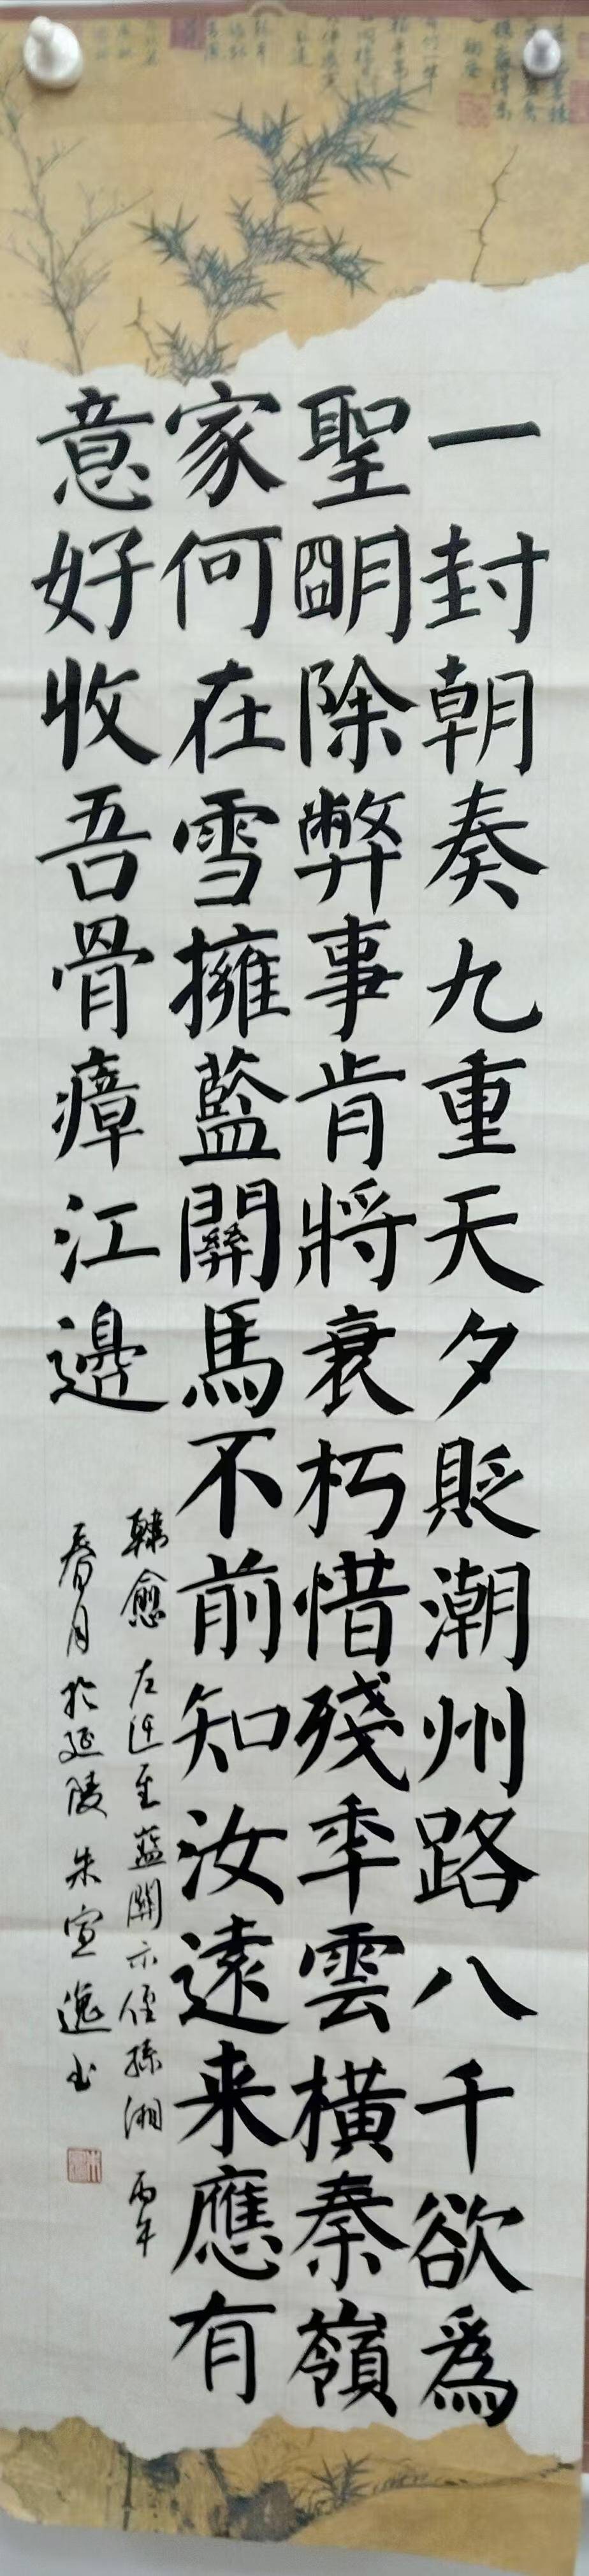 一封朝奏九重天夕貶潮州路八千欲爲
聖明除弊事肯將衰朽惜殘年雲橫秦嶺
家何在雪擁藍關馬不前知汝遠来應有
意好收吾骨瘴江邊
韓愈左迁至藍關示侄孫湘丙午
春月於延陵朱宣逸书